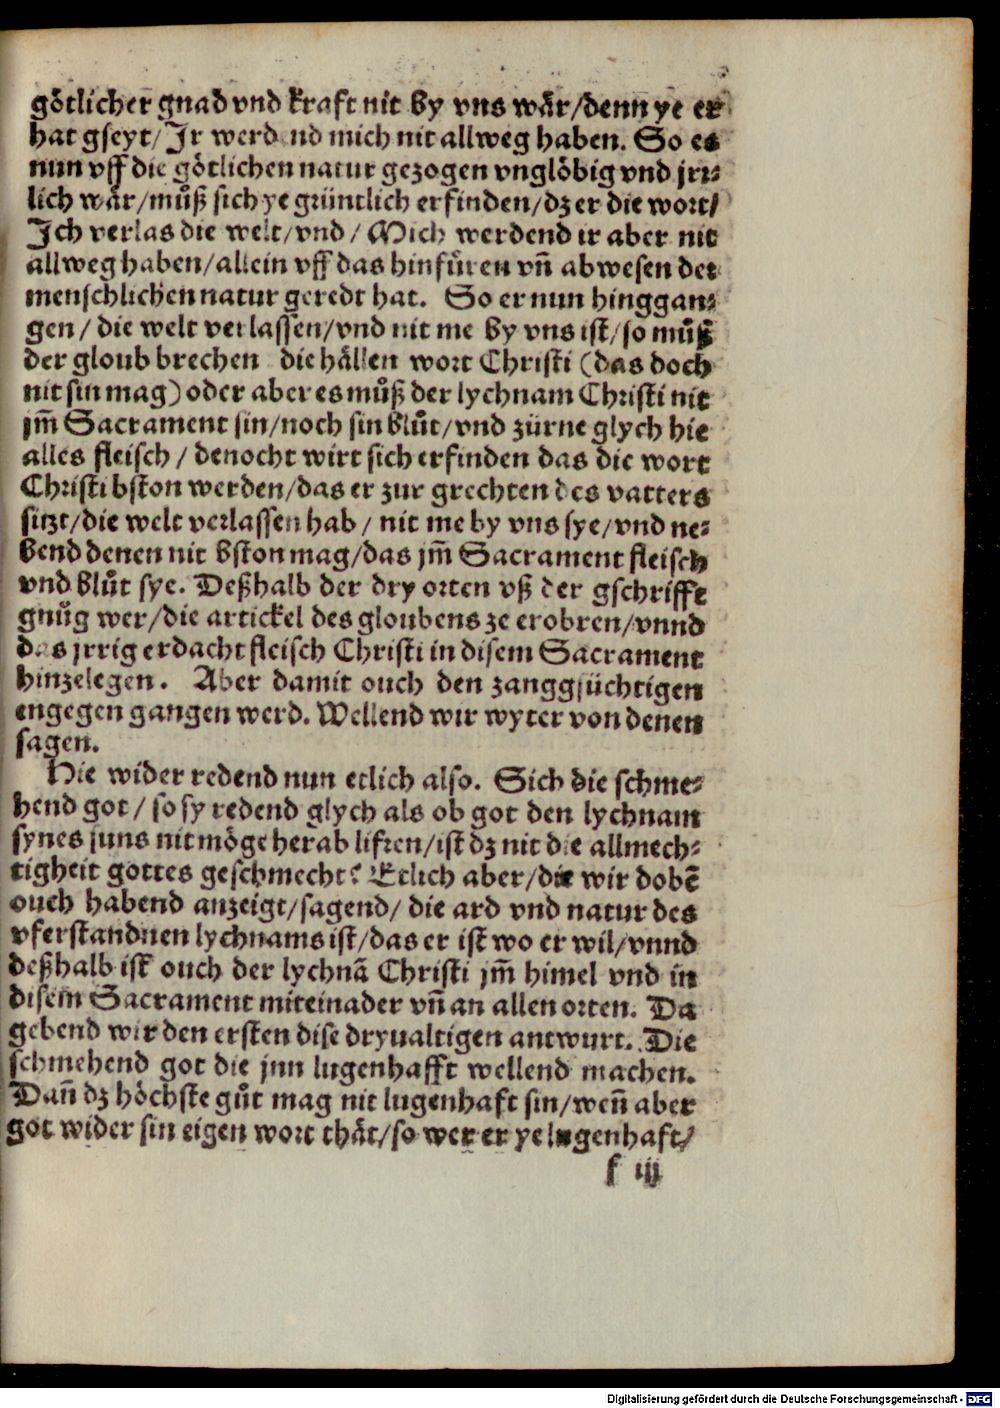 götlicher gnad vnd kraft nit by vns wår/denn ye er
hat gseyt/Ir werdend mich nit allweg haben. So es
nun vff die götlichen natur gezogen vnglöbig vnd jrr⸗
lich wår/můß sich ye grüntlich erfinden/dz er die wort/
Ich verlas die welt/vnd/Mich werdend ir aber nit
allweg haben/allein vff das hinfůren vñ abwesen der
menschlichen natur geredt hat. So er nun hinggan⸗
gen/die welt verlassen/vnd nit me by vns ist/so můß
der gloub brechen die hållen wort Christi (das doch
nit sin mag) oder aber es můß der lychnam Christi nit
jm̃ Sacrament sin/noch sin blůt/vnd zürne glych hie
alles fleisch/denocht wirt sich erfinden das die wort
Christi bston werden/das er zur grechten des vatters
sitzt/die welt verlassen hab/nit me by vns sye/vnd ne⸗
bend denen nit bston mag/das jm̃ Sacrament fleisch
vnd blůt sye. Deßhalb der dry orten vß der gschrifft
gnůg wer/die artickel des gloubens ze erobren/vnnd
das jrrig erdacht fleisch Christi in disem Sacrament
hinzelegen. Aber damit ouch den zanggsüchtigen
engegen gangen werd. Wellend wir wyter von denen
sagen.
Hie wider redend nun etlich also. Sich die schme⸗
hend got/so sy redend glych als ob got den lychnam
synes suns nit möge herab lifren/ist dz nit die allmech⸗
tigheit gottes geschmecht? Etlich aber/die wir dobē
ouch habend anzeigt/sagend/die ard vnd natur des
vferstandnen lychnams ist/das er ist wo er wil/vnnd
deßhalb ist ouch der lychnā Christi jm̃ himel vnd in
disem Sacrament miteinader vñ an allen orten. Da
gebend wir den ersten dise dryualtigen antwurt. Die
schmehend got die jnn lugenhafft wellend machen.
Dañ dz höchste gůt mag nit lugenhaft sin/weñ aber
got wider sin eigen wort thåt/so wer er ye lugenhaft/
f iij
Digitalisierung gefördert durch die Deutsche Forschungsgemeinschaft - DFG